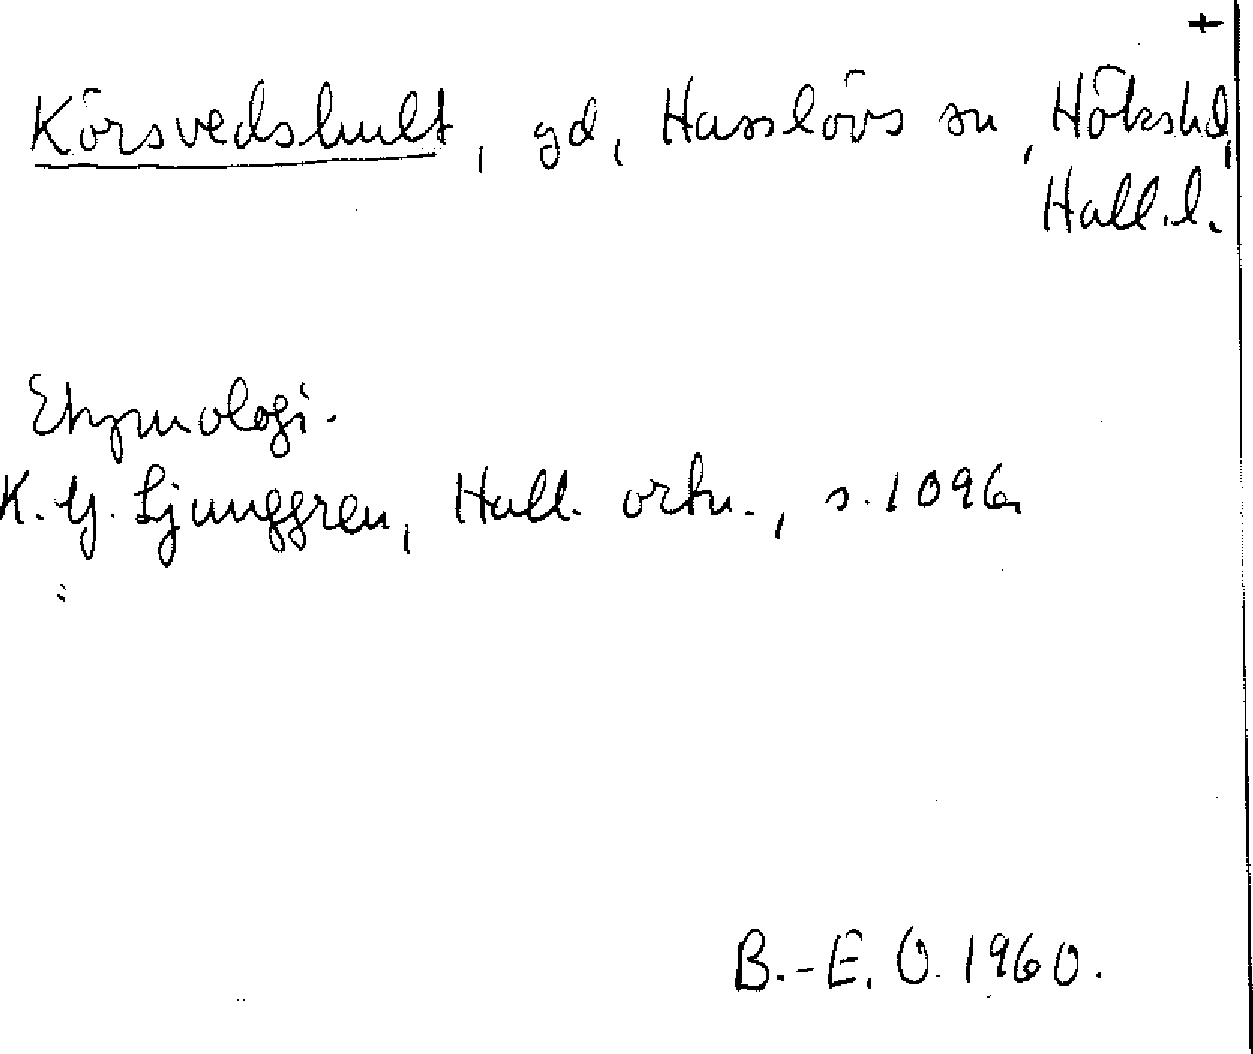 +
Körsvedshult, gd, Hasslövs sn, Hökshd,
Hall.l.
Etymologi.
K. G. Ljunggren, Hall. ortn., s. 109 f.
B.-E. O. 1960.